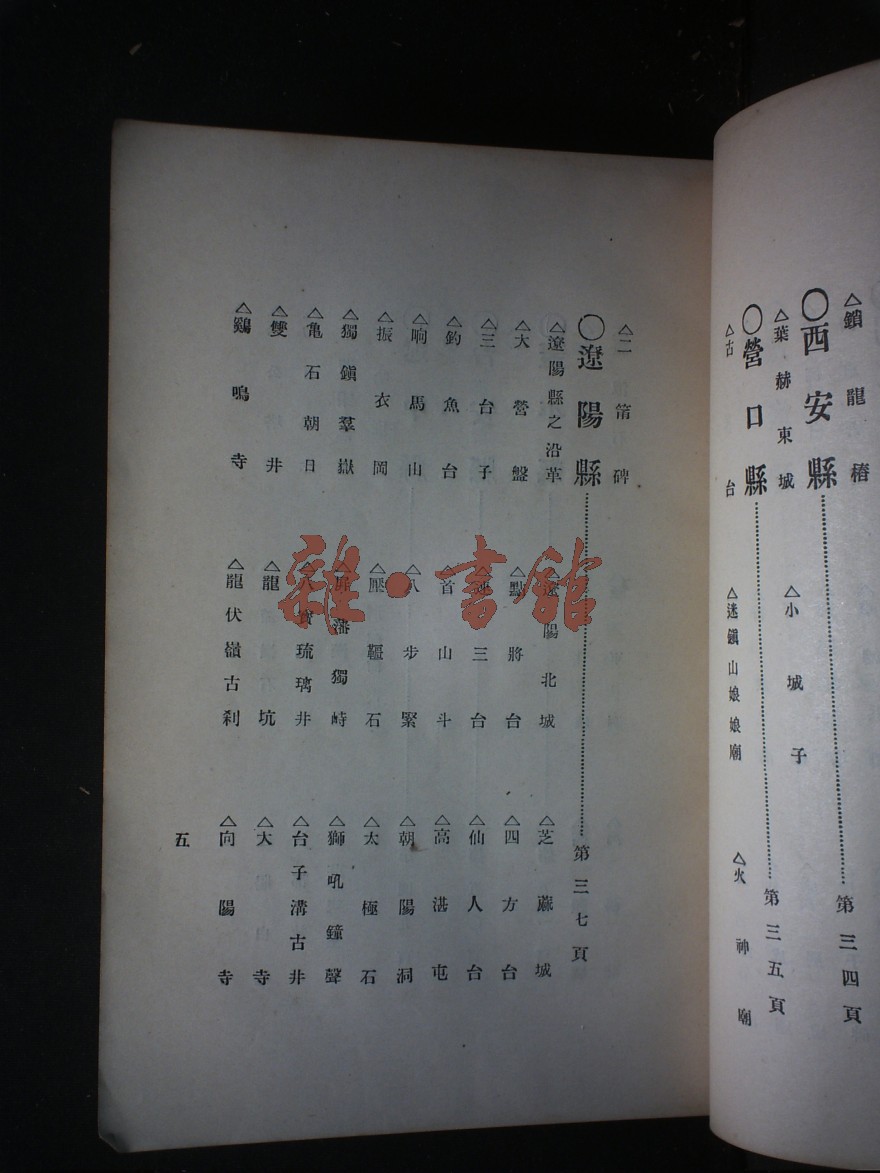 △鎖龍樁
〇西安縣……第三四頁
△葉赫東城 △小城子
〇營口縣……第三五頁
△古台 △迷鎭山娘娘廟 △火神廟
△二箭碑
〇遼陽縣……第三七頁
△遼陽縣之沿革 △遼陽北城 △芝蔴城
△大營盤 △點將台 △四方台
△三台子 三台 △仙人台
△釣魚台 △首山斗 △高湛屯
△响馬山 △八步緊 △朝陽洞
△振衣岡 △壓韁石 △太極石
△獨鎭羣嶽 △屏藩獨峙 △獅吼鐘聲
△亀石朝日 △八寳琉璃井 △台子溝古井
△雙井 △龍坑 △大寺
△鷄鳴寺 △龍伏嶺古刹 △向陽寺
五
雜·書館